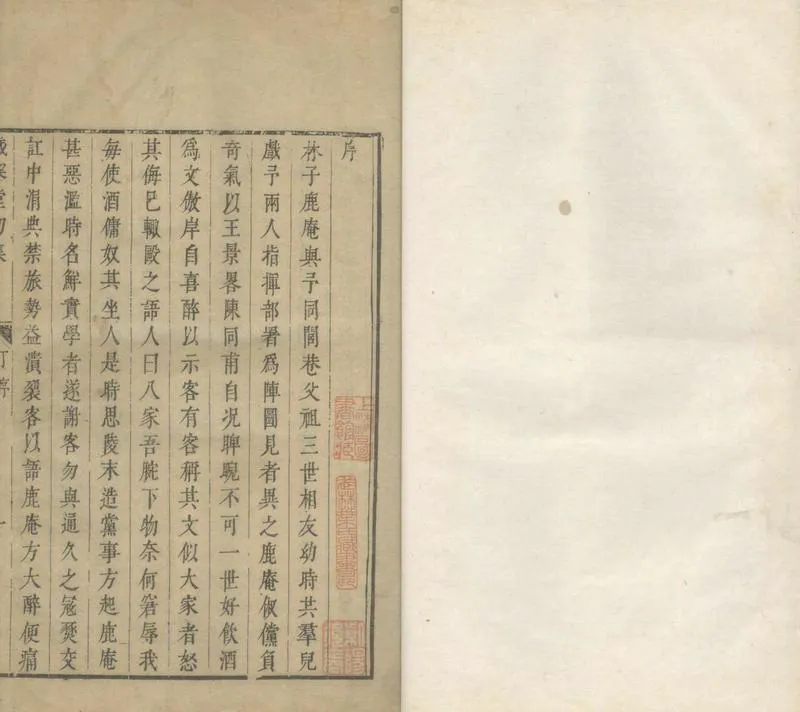 序
林子鹿庵與予同閭巷父祖三世相友幼時共羣兒
戲予兩人指揮部署為陣圖見者異之鹿庵俶儻負
奇氣以王景畧陳同甫自况睥睨不可一世好飲酒
為文傲岸自喜醉以示客有客稱其文似大家者怒
其侮已輙毆之語人曰八家吾腕下物奈何窘辱我
每使酒傭奴其坐人是時思陵末造黨事方起鹿庵
甚惡濫時名鮮實學者遂謝客勿與通久之冦燹交
訌中涓典禁旅勢益潰裂客以語鹿庵方大醉便痛